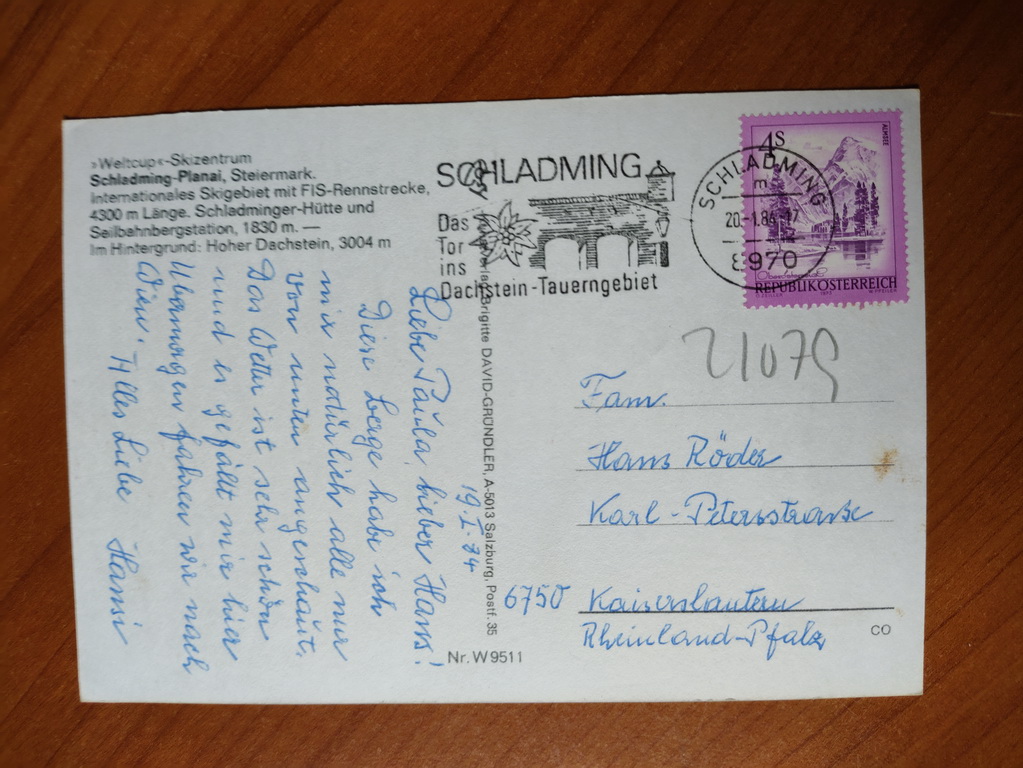 »Weltcup«-Skizentrum
Schladming-Planai, Steiermark.
Internationales Skigebiet mit FIS-Rennstrecke,
4300 m Länge. Schladminger-Hütte und
Seilbahnbergstation, 1830 m. —
Im Hintergrund: Hoher Dachstein, 3004 m
SCHLADMING
Das
Tor
ins
Dachstein-Tauerngebiet
SCHLADMING
20.-1.84-17
8970
4S
ALMSEE
REPUBLIK ÖSTERREICH
21079
19.I.84
Liebe Paula, lieber Hans!
Diese Berge habe ich
mir natürlich alle nur
von unten angeschaut.
Das Wetter ist sehr schön
und es gefällt mir hier
Übermorgen fahren wir nach
Wien. Alles Liebe Hansi
Brigitte DAVID-GRÜNDLER, A-5013 Salzburg, Postf. 35
Nr. W9511
Fam.
Hans Röder
Karl-Petersstrasse
6750 Kaiserslautern
Rheinland-Pfalz
CO